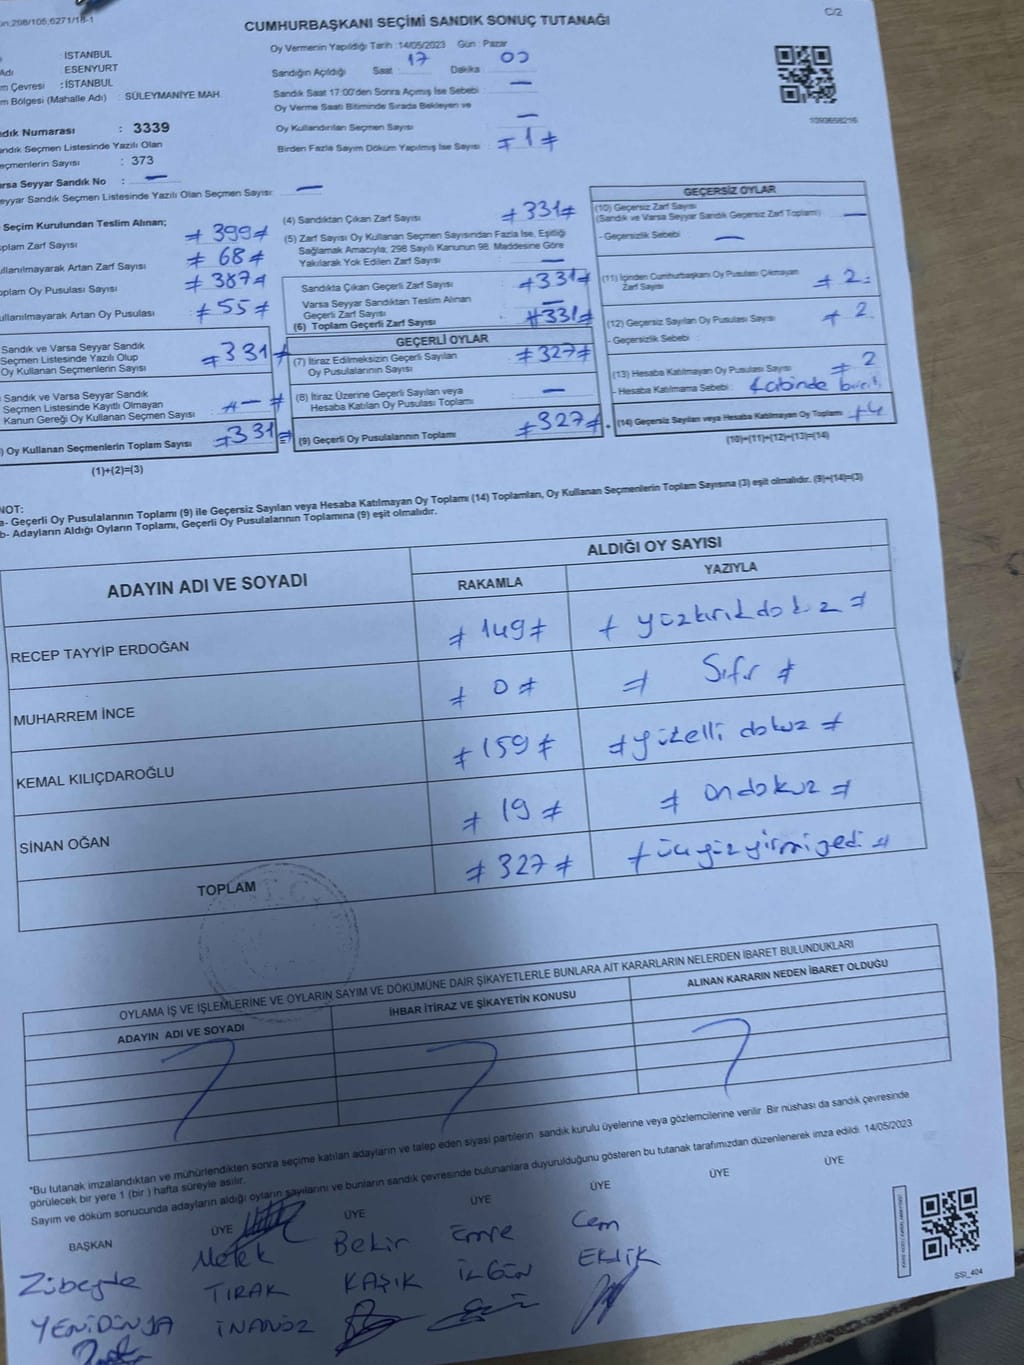 298/105,6271/18-1
CUMHURBAŞKANI SEÇİMİ SANDIK SONUÇ TUTANAĞI
C/2
İSTANBUL
Adı ESENYURT
m Çevresi : İSTANBUL
m Bölgesi (Mahalle Adı) SÜLEYMANİYE MAH.
ndık Numarası : 3339
ndık Seçmen Listesinde Yazılı Olan
eçmenlerin Sayısı : 373
arsa Seyyar Sandık No : —
eyyar Sandık Seçmen Listesinde Yazılı Olan Seçmen Sayısı: —
Oy Vermenin Yapıldığı Tarih :14/05/2023 Gün : Pazar
Sandığın Açıldığı Saat 17 Dakika 00
Sandık Saat 17:00'den Sonra Açımış İse Sebebi —
Oy Verme Saati Bitiminde Sırada Bekleyen ve
Oy Kullandırılan Seçmen Sayısı —
Birden Fazla Sayım Döküm Yapılmış İse Sayısı ≠1≠
1090658216
Seçim Kurulundan Teslim Alınan;
oplam Zarf Sayısı ≠ 399≠
ullanılmayarak Artan Zarf Sayısı ≠ 68≠
oplam Oy Pusulası Sayısı ≠ 387≠
ullanılmayarak Artan Oy Pusulası : ≠ 55≠
Sandık ve Varsa Seyyar Sandık
Seçmen Listesinde Yazılı Olup
Oy Kullanan Seçmenlerin Sayısı ≠331≠
Sandık ve Varsa Seyyar Sandık
Seçmen Listesinde Kayıtlı Olmayan
Kanun Gereği Oy Kullanan Seçmen Sayısı ≠—≠
) Oy Kullanan Seçmenlerin Toplam Sayısı ≠331≠
(1)+(2)=(3)
(4) Sandıktan Çıkan Zarf Sayısı ≠331≠
(5) Zarf Sayısı Oy Kullanan Seçmen Sayısından Fazla İse, Eşitliği
Sağlamak Amacıyla; 298 Sayılı Kanunun 98. Maddesine Göre
Yakılarak Yok Edilen Zarf Sayısı —
Sandıkta Çıkan Geçerli Zarf Sayısı ≠331≠
Varsa Seyyar Sandıktan Teslim Alınan
Geçerli Zarf Sayısı : —
(6) Toplam Geçerli Zarf Sayısı ≠331≠
GEÇERLİ OYLAR
(7) İtiraz Edilmeksizin Geçerli Sayılan
Oy Pusulalarının Sayısı : ≠327≠
(8) İtiraz Üzerine Geçerli Sayılan veya
Hesaba Katılan Oy Pusulası Toplamı : —
(9) Geçerli Oy Pusulalarının Toplamı ≠327≠
GEÇERSİZ OYLAR
(10) Geçersiz Zarf Sayısı
(Sandık ve Varsa Seyyar Sandık Geçersiz Zarf Toplamı) —
- Geçersizlik Sebebi —
(11) İçinden Cumhurbaşkanı Oy Pusulası Çıkmayan
Zarf Sayısı ≠ 2
(12) Geçersiz Sayılan Oy Pusulası Sayısı ≠ 2
- Geçersizlik Sebebi :
(13) Hesaba Katılmayan Oy Pusulası Sayısı ≠ 2
- Hesaba Katılmama Sebebi : Kabinde
(14) Geçersiz Sayılan veya Hesaba Katılmayan Oy Toplamı ≠4
(10)+(11)+(12)+(13)=(14)
NOT:
a- Geçerli Oy Pusulalarının Toplamı (9) ile Geçersiz Sayılan veya Hesaba Katılmayan Oy Toplamı (14) Toplamları, Oy Kullanan Seçmenlerin Toplam Sayısına (3) eşit olmalıdır. (9)+(14)=(3)
b- Adayların Aldığı Oyların Toplamı, Geçerli Oy Pusulalarının Toplamına (9) eşit olmalıdır.
ADAYIN ADI VE SOYADI
ALDIĞI OY SAYISI
RAKAMLA YAZIYLA
RECEP TAYYİP ERDOĞAN ≠ 149≠ ≠ yüzkırkdokuz ≠
MUHARREM İNCE ≠ 0 ≠ ≠ Sıfır ≠
KEMAL KILIÇDAROĞLU ≠ 159 ≠ ≠ yüzelli dokuz ≠
SİNAN OĞAN ≠ 19 ≠ ≠ ondokuz ≠
TOPLAM ≠ 327 ≠ ≠ üçyüzyirmiyedi ≠
OYLAMA İŞ VE İŞLEMLERİNE VE OYLARIN SAYIM VE DÖKÜMÜNE DAİR ŞİKAYETLERLE BUNLARA AİT KARARLARIN NELERDEN İBARET BULUNDUKLARI
ADAYIN ADI VE SOYADI İHBAR İTİRAZ VE ŞİKAYETİN KONUSU ALINAN KARARIN NEDEN İBARET OLDUĞU
*Bu tutanak imzalandıktan ve mühürlendikten sonra seçime katılan adayların ve talep eden siyasi partilerin sandık kurulu üyelerine veya gözlemcilerine verilir. Bir nüshası da sandık çevresinde
görülecek bir yere 1 (bir ) hafta süreyle asılır.
Sayım ve döküm sonucunda adayların aldığı oyların sayılarını ve bunların sandık çevresinde bulunanlara duyurulduğunu gösteren bu tutanak tarafımızdan düzenlenerek imza edildi. 14/05/2023
BAŞKAN ÜYE ÜYE ÜYE ÜYE ÜYE ÜYE
Zübeyde Melek Bekir Emre Cem
YENİDÜNYA TIRAK KAŞIK İLGÜN EKLİK
İNANÖZ
SSI_404